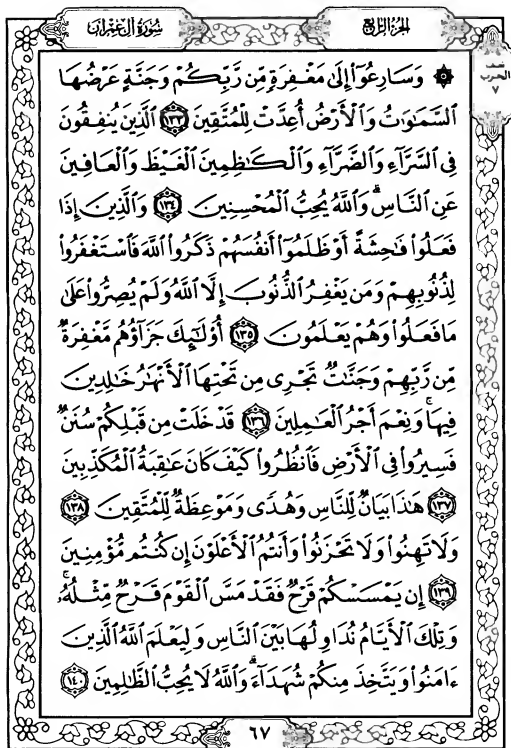 الجزء الرابع
سورة آل عمران
نصف
الحزب
٧
۞ وَسَارِعُوٓا۟ إِلَىٰ مَغْفِرَةٍ مِّن رَّبِّكُمْ وَجَنَّةٍ عَرْضُهَا
ٱلسَّمَٰوَٰتُ وَٱلْأَرْضُ أُعِدَّتْ لِلْمُتَّقِينَ ١٣٣ ٱلَّذِينَ يُنفِقُونَ
فِى ٱلسَّرَّآءِ وَٱلضَّرَّآءِ وَٱلْكَٰظِمِينَ ٱلْغَيْظَ وَٱلْعَافِينَ
عَنِ ٱلنَّاسِۗ وَٱللَّهُ يُحِبُّ ٱلْمُحْسِنِينَ ١٣٤ وَٱلَّذِينَ إِذَا
فَعَلُوا۟ فَٰحِشَةً أَوْ ظَلَمُوٓا۟ أَنفُسَهُمْ ذَكَرُوا۟ ٱللَّهَ فَٱسْتَغْفَرُوا۟
لِذُنُوبِهِمْ وَمَن يَغْفِرُ ٱلذُّنُوبَ إِلَّا ٱللَّهُ وَلَمْ يُصِرُّوا۟ عَلَىٰ
مَا فَعَلُوا۟ وَهُمْ يَعْلَمُونَ ١٣٥ أُو۟لَٰٓئِكَ جَزَآؤُهُم مَّغْفِرَةٌ
مِّن رَّبِّهِمْ وَجَنَّٰتٌ تَجْرِى مِن تَحْتِهَا ٱلْأَنْهَٰرُ خَٰلِدِينَ
فِيهَاۚ وَنِعْمَ أَجْرُ ٱلْعَٰمِلِينَ ١٣٦ قَدْ خَلَتْ مِن قَبْلِكُمْ سُنَنٌ
فَسِيرُوا۟ فِى ٱلْأَرْضِ فَٱنظُرُوا۟ كَيْفَ كَانَ عَٰقِبَةُ ٱلْمُكَذِّبِينَ
١٣٧ هَٰذَا بَيَانٌ لِّلنَّاسِ وَهُدًى وَمَوْعِظَةٌ لِّلْمُتَّقِينَ ١٣٨
وَلَا تَهِنُوا۟ وَلَا تَحْزَنُوا۟ وَأَنتُمُ ٱلْأَعْلَوْنَ إِن كُنتُم مُّؤْمِنِينَ
١٣٩ إِن يَمْسَسْكُمْ قَرْحٌ فَقَدْ مَسَّ ٱلْقَوْمَ قَرْحٌ مِّثْلُهُۥۚ
وَتِلْكَ ٱلْأَيَّامُ نُدَاوِلُهَا بَيْنَ ٱلنَّاسِ وَلِيَعْلَمَ ٱللَّهُ ٱلَّذِينَ
ءَامَنُوا۟ وَيَتَّخِذَ مِنكُمْ شُهَدَآءَۗ وَٱللَّهُ لَا يُحِبُّ ٱلظَّٰلِمِينَ ١٤٠
٦٧